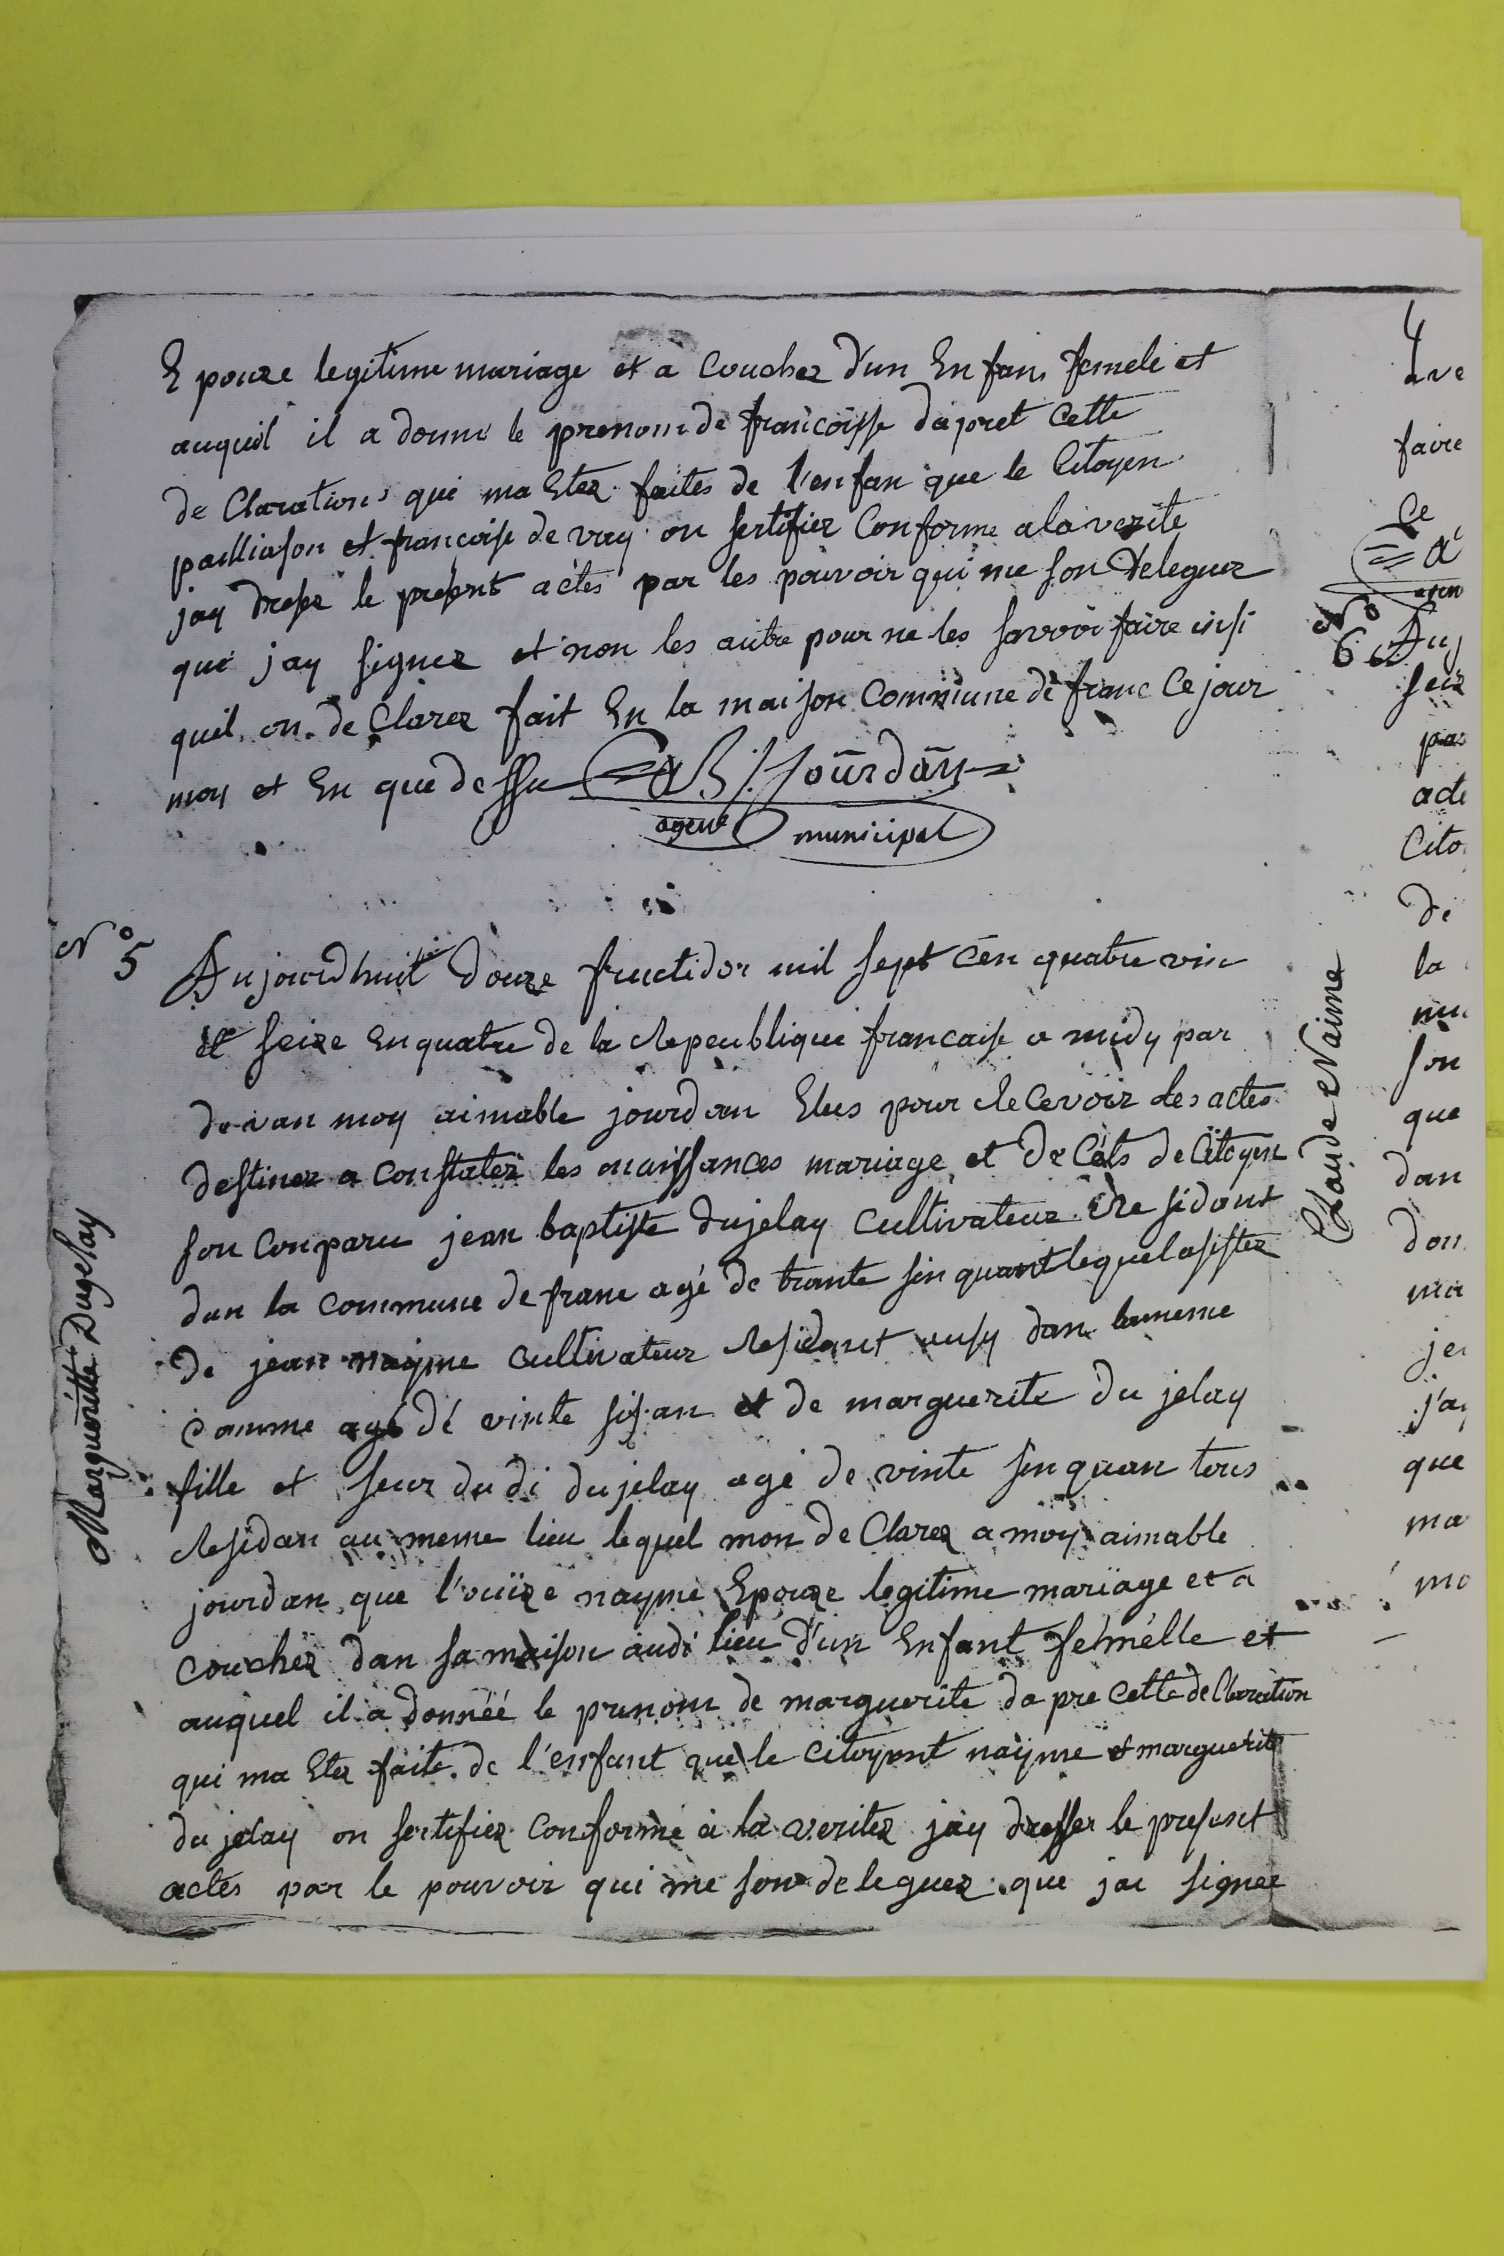 Epouze legitime mariage et a Couchez d'un Enfan femele et
auquel il a donné le prenom de francoisse dapret cette
de Claration qui ma Etez faites de l'enfan que le Citoyen
pailliason et francoise de vray on sertifiez Conforme a la verite
jay dresez le present actes par les pouvoir qui me son deleguez
que jay signez et non les autre pour ne les savoir faire insi
quil on de Clarez fait En la maison Commune de franc Ce jour
moy et En que dessu AB Jourdan
agent municipal
N° 5
Aujourdhuit douze fructidor mil sept cen quatre vin
et seize En quatre de la Republique francaise a midy par
devan moy aimable jourdan Elus pour Recevoir les actes
destinez a Constatez les naissances mariage et deCets de Citoyen
son Conparu jean baptiste dujelay Cultivateur Residant
dan la commune de franc agé de trante sinq uant lequel asistez
de jean nayme Cultivateur Residant ausy dan la meme
Comme agé de vinte sis an et de marguerite du jelay
fille et seur du di dujelay agé de vinte sinq uan tous
Residan au meme lieu lequel mon de Clarez a moy aimable
jourdan que l'ouïze nayme Epouze legitime mariage et a
couchez dan sa maison audi lieu d'un Enfant femélle et
auquel il a donnéé le prenom de marguerite da pre cette de Claration
qui ma Etez faite de l'enfant que le Citoyent nayme et marguerite
du jelay on sertifiez Conforme à la veritez jay dressez le present
actes par le pouvoir qui me son deleguez que jai signez
Margueritte Dugelay
Claude Naime
4
ave
faire
Ce
N°
6
Auj
seiz
par
acte
Cito
de
la
son
que
dan
don
ma
j'ay
que
ma
mo